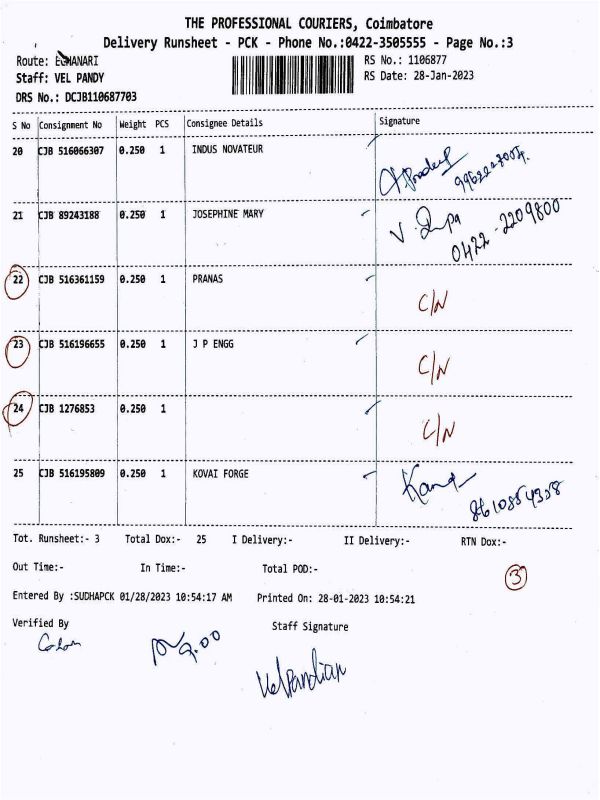 THE PROFESSIONAL COURIERS, Coimbatore
Delivery Runsheet - PCK - Phone No.:0422-3505555 - Page No.:3
Route: ECHANARI
RS No.: 1106877
Staff: VEL PANDY
RS Date: 28-Jan-2023
DRS No.: DCJB110687703
S No Consignment No Weight PCS Consignee Details Signature
20 CJB 516066307 0.250 1 INDUS NOVATEUR
21 CJB 89243188 0.250 1 JOSEPHINE MARY
0422-2209800
22 CJB 516361159 0.250 1 PRANAS C/N
23 CJB 516196655 0.250 1 J P ENGG C/N
24 CJB 1276853 0.250 1 C/N
25 CJB 516195809 0.250 1 KOVAI FORGE
Tot. Runsheet:- 3 Total Dox:- 25 I Delivery:- II Delivery:- RTN Dox:-
Out Time:- In Time:- Total POD:-
3
Entered By :SUDHAPCK 01/28/2023 10:54:17 AM Printed On: 28-01-2023 10:54:21
Verified By Staff Signature
Velpandian